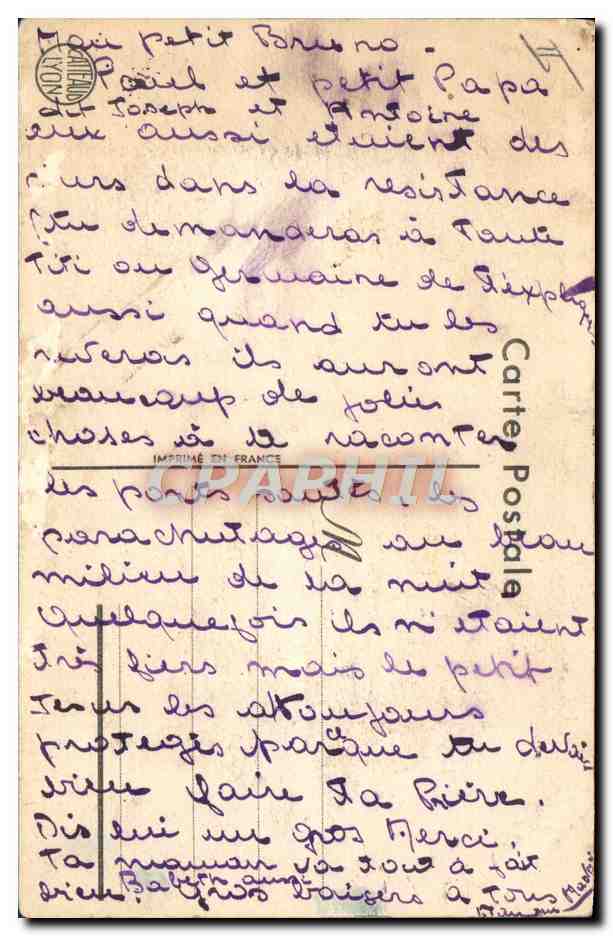 Mon petit Bruno.
GATTEAUD LYON
Paul et petit Papa
dit Joseph et Antoine
eux aussi etaient des
durs dans la resistance
tu demanderas à Tante
Titi ou Germaine de t'expliquer
aussi quand tu les
reveras ils auront
beaucoup de jolies
choses à te raconter
IMPRIMÉ EN FRANCE
Carte Postale
CPAPHIL
les ponts sautés, les
parachutages au beau
milieu de la nuit
quelquefois ils n'étaient
très fiers mais le petit
Jesus les a toujours
protegés parceque tu devais
bien faire ta Prière.
Dis lui un gros Merci.
Ta maman va tout à fait
bien. Babeth aussi
Gros baisers à Tous